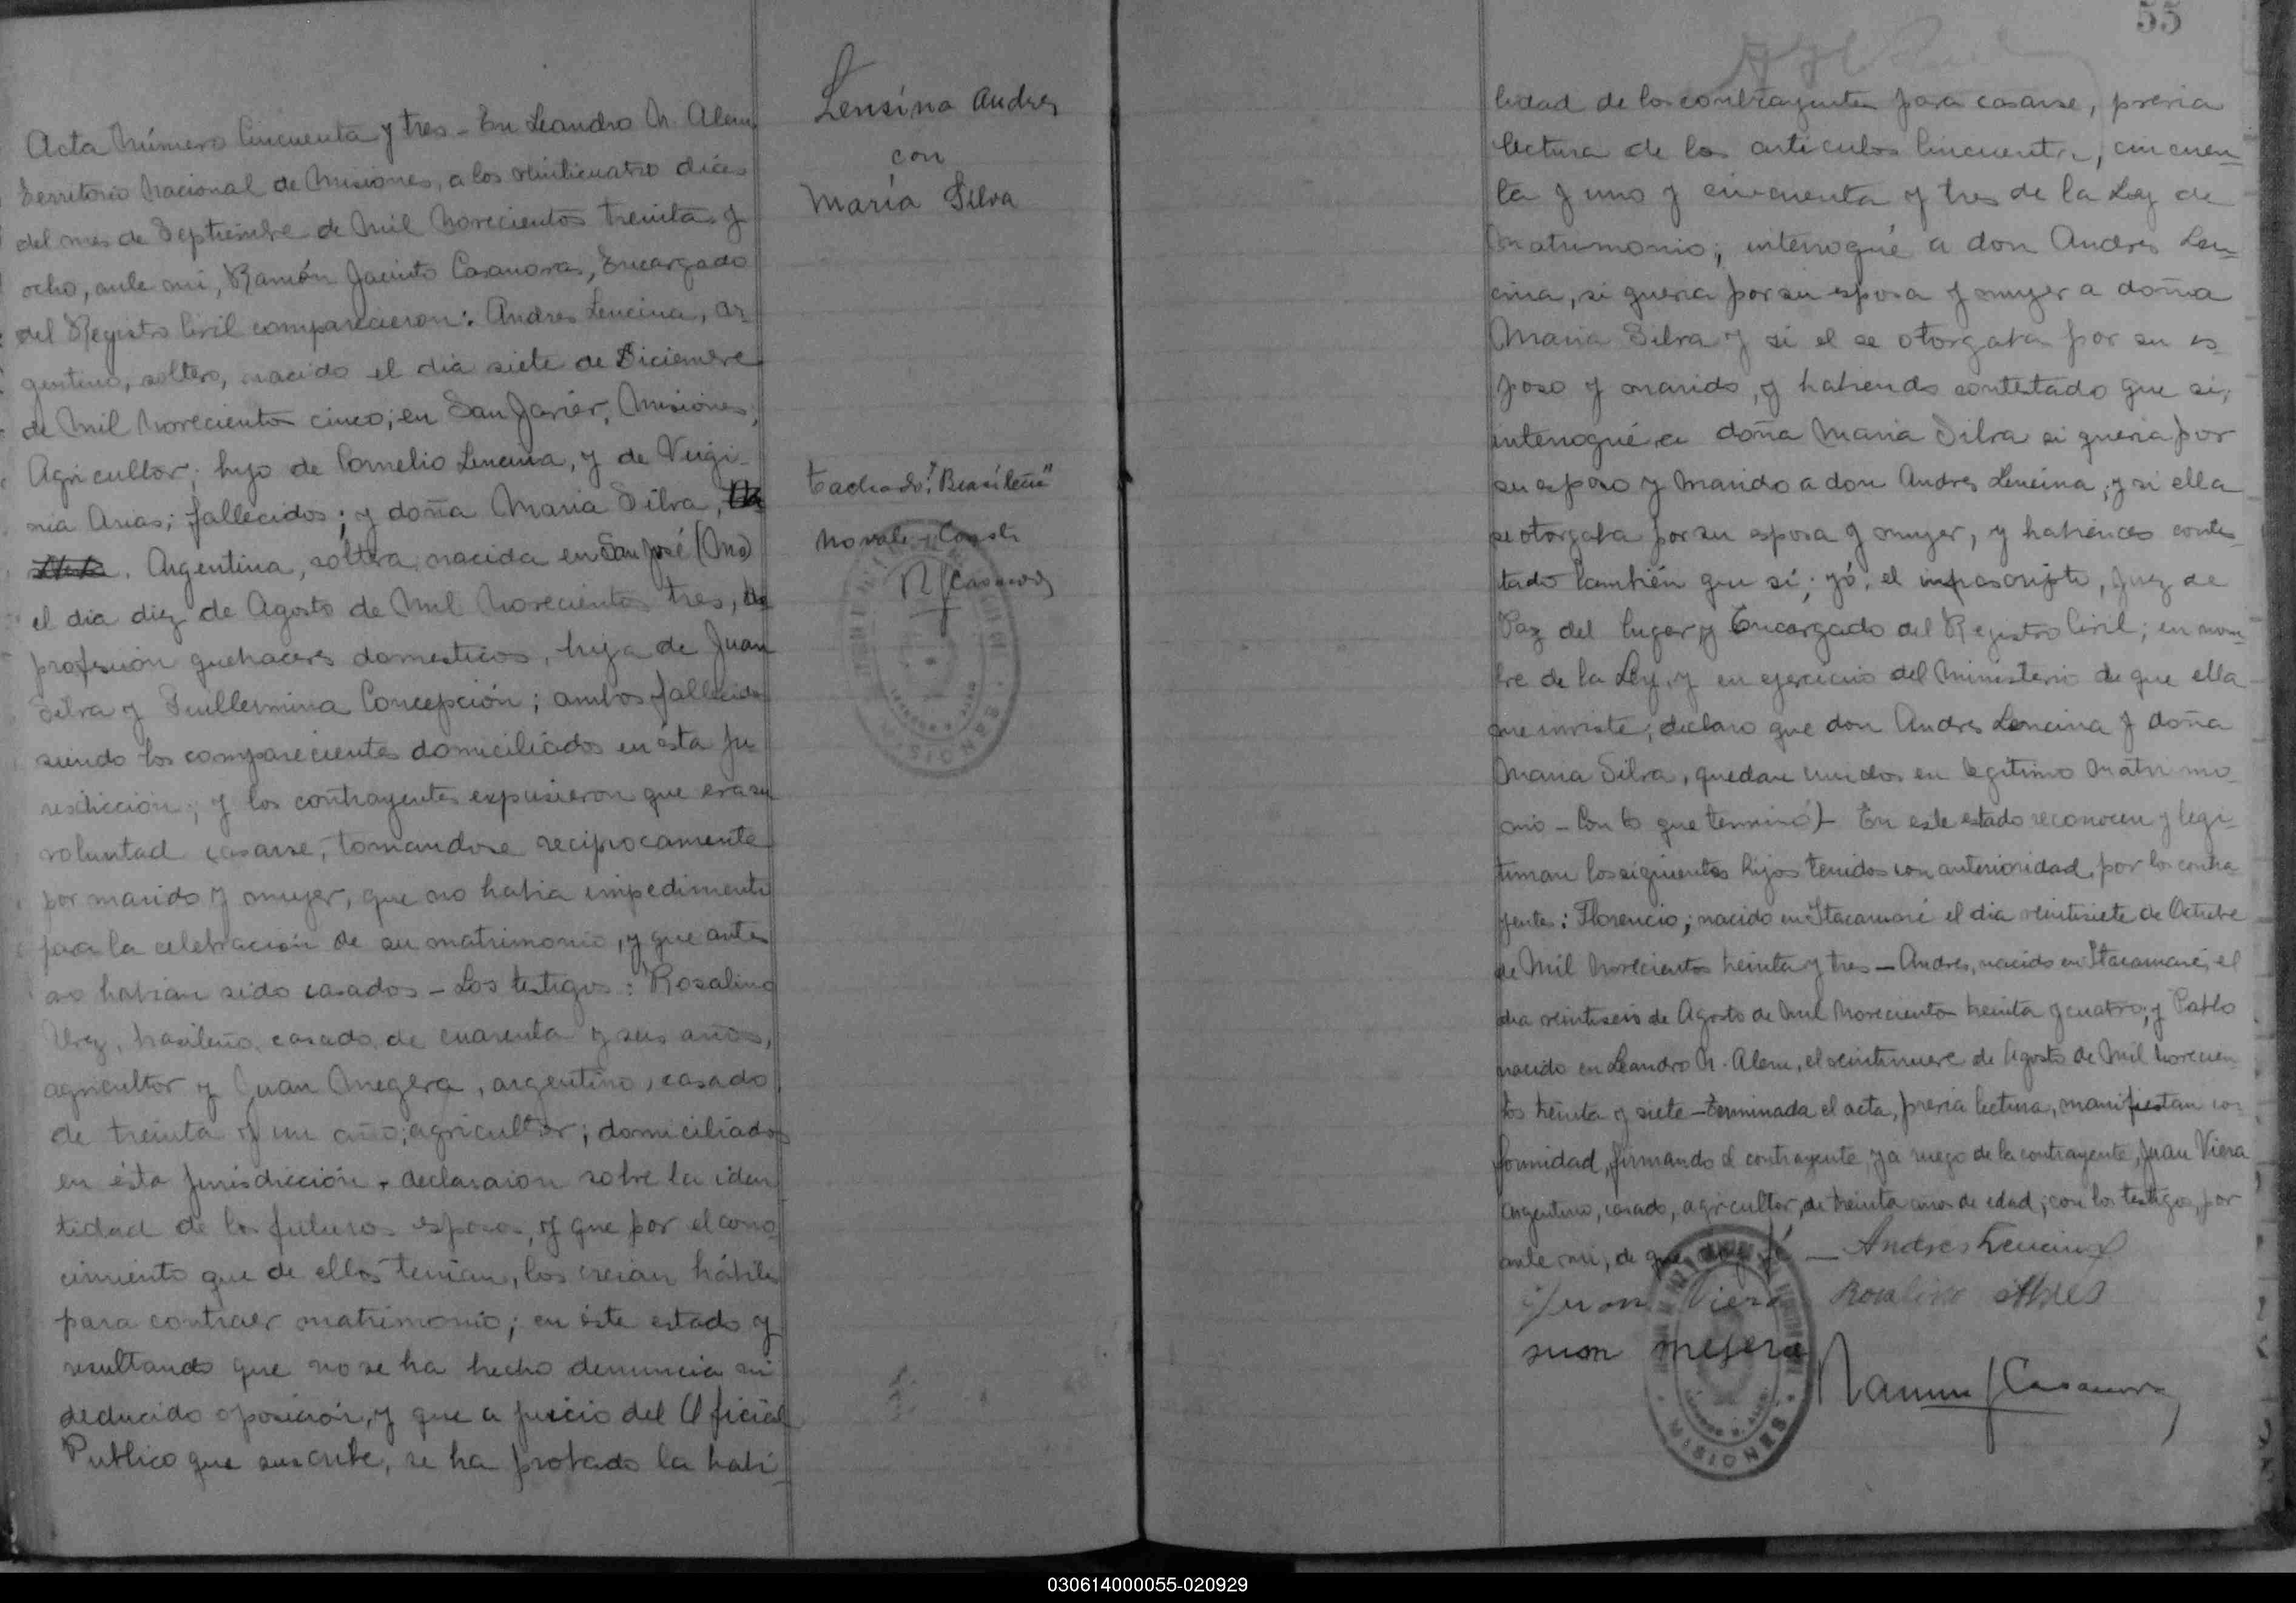 Acta Número Cincuenta y tres - En Leandro N. Alem,
Territorio Nacional de Misiones, a los veinticuatro dias
del mes de Septiembre de Mil Novecientos treinta y
ocho, ante mi, Ramón Jacinto Casanova, Encargado
del Registro Civil comparecieron: Andres Lencina, ar
gentino, soltero, nacido el dia siete de Diciembre
de Mil Novecientos cinco, en San Javier, Misiones,
Agricultor, hijo de Cornelio Lencina, y de Virgi-
nia Arias; fallecidos; y doña Maria Silva,
Argentina, soltera, nacida en San José (Mnes)
el dia diez de Agosto de Mil Novecientos tres, de
profesión quehaceres domesticos, hija de Juan
Silva y Guillermina Concepción; ambos fallecidos
siendo los comparecientes domiciliados en ésta ju
risdicción; y los contrayentes expusieron que era su
voluntad casarse, tomandose reciprocamente
por marido y mujer, que no habia impedimento
para la celebración de su matrimonio, y que antes
no habian sido casados - Los testigos: Rosalino
brasileño, casado, de cuarenta y seis años,
agricultor y Juan Megera, argentino, casado,
de treinta y un año; agricultor; domiciliados
en ésta jurisdicción, declararon sobre la iden
tidad de los futuros esposos, y que por el cono
cimiento que de ellos tenian, los creian hábiles
para contraer matrimonio; en éste estado y
resultando que no se ha hecho denuncia ni
deducido oposición, y que a juicio del Oficial
Publico que suscribe, se ha probado la habi-
Lensina Andres
con
María Silva
Tachado: "Brasileña"
No vale - Conste
R J Casanova
MISIONES
55
lidad de los contrayentes para casarse, previa
lectura de los articulos Cincuenta, cincuen-
ta y uno y cincuenta y tres de la Ley de
Matrimonio; interrogué a don Andres Len-
cina, si queria por su esposa y mujer a doña
Maria Silva y si el se otorgaba por su es-
poso y marido, y habiendo contestado que si,
interrogué a doña Maria Silva si queria por
su esposo y marido a don Andres Lencina, y si ella
se otorgaba por su esposa y mujer, y habiendo contes-
tado también que sí; yó, el infrascripto, Juez de
Paz del lugar y Encargado del Registro Civil; en nom-
bre de la Ley, y en ejercicio del Ministerio de que ella
me inviste; declaro que don Andres Lencina y doña
Maria Silva, quedan unidos en legitimo Matrimo-
nio - Con lo que terminó) - En este estado reconocen y legi-
timan los siguientes hijos tenidos con anterioridad, por los contra-
yentes: Florencio; nacido en Itacaruaré el dia veintisiete de Octubre
de Mil Novecientos treinta y tres - Andres, nacido en Itacaruaré, el
dia veintiseis de Agosto de Mil Novecientos treinta y cuatro, y Pablo
nacido en Leandro N. Alem, el veintinueve de Agosto de Mil Novecien-
tos treinta y siete - Terminada el acta, previa lectura, manifiestan con
formidad, firmando el contrayente, y a ruego de la contrayente, Juan Viera
Argentino, casado, agricultor, de treinta años de edad; con los testigos, por
ante mi, de que doy fé - Andres Lencina
Juan Viera
Juan Megera
Ramon J Casanova
MISIONES
030614000055-020929